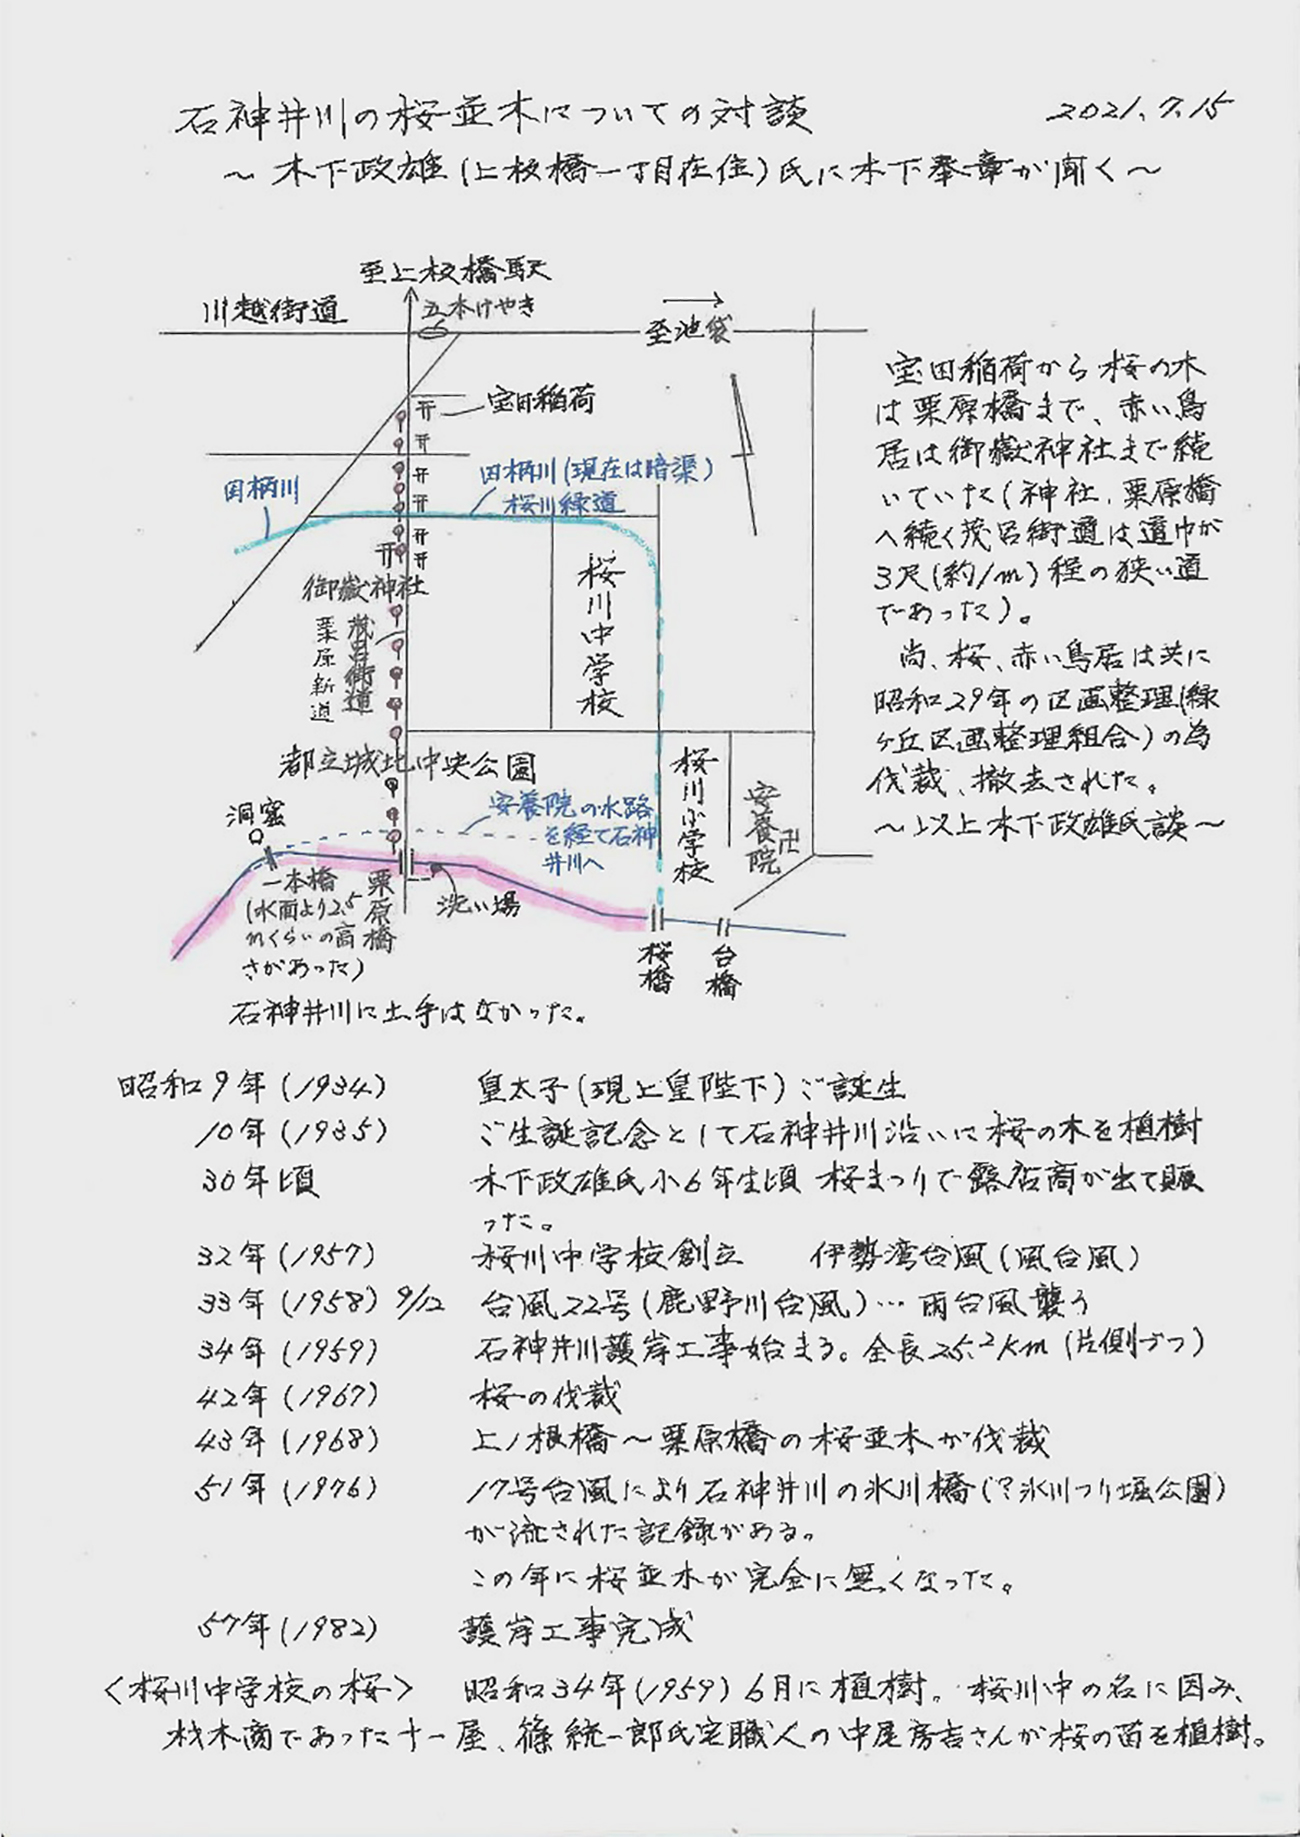 石神井川の桜並木についての対談
2021.7.15
～木下政雄(上板橋一丁目在住)氏に木下奉章が聞く～
至上板橋駅
川越街道
五本けやき
至池袋
宝田稲荷
田柄川
田柄川(現在は暗渠)
桜川緑道
御嶽神社
茂呂街道
栗原新道
桜川中学校
都立城北中央公園
桜川小学校
安養院
卍
洞窟
安養院の水路
を経て石神
井川へ
一本橋
(水面より2.5
mくらいの高
さがあった)
栗原橋
洗い場
桜橋
台橋
石神井川に土手はなかった。
宝田稲荷から桜の木
は栗原橋まで、赤い鳥
居は御嶽神社まで続
いていた(神社、栗原橋
へ続く茂呂街道は道巾が
3尺(約1m)程の狭い道
であった)。
尚、桜、赤い鳥居は共に
昭和29年の区画整理(緑
ヶ丘区画整理組合)の為
伐裁、撤去された。
～以上木下政雄氏談～
昭和9年(1934) 皇太子(現上皇陛下)ご誕生
10年(1935) ご生誕記念として石神井川沿いに桜の木を植樹
30年頃 木下政雄氏小6年生頃 桜まつりで露店商が出て賑
った。
32年(1957) 桜川中学校創立 伊勢湾台風(風台風)
33年(1958) 9/12 台風22号(鹿野川台風)…雨台風襲う
34年(1959) 石神井川護岸工事始まる。全長25.2km(片側づつ)
42年(1967) 桜の伐裁
43年(1968) 上ノ根橋～栗原橋の桜並木が伐裁
51年(1976) 17号台風により石神井川の氷川橋(?氷川つり堀公園)
が流された記録がある。
この年に桜並木が完全に無くなった。
57年(1982) 護岸工事完成
<桜川中学校の桜> 昭和34年(1959)6月に植樹。桜川中の名に因み、
材木商であった十一屋、篠統一郎氏宅職人の中尾房吉さんが桜の苗を植樹。